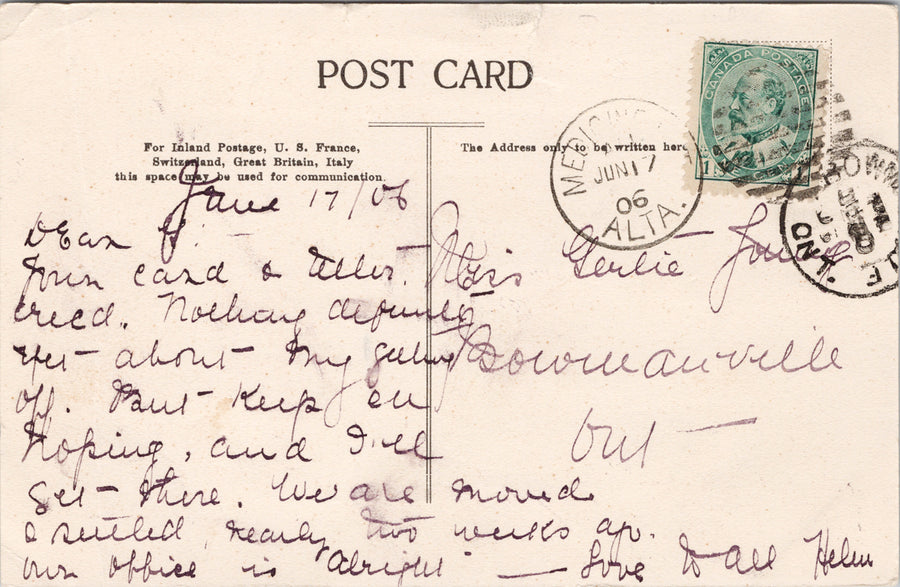 POST CARD
For Inland Postage, U. S. France,
Switzerland, Great Britain, Italy
this space may be used for communication.
The Address only to be written here
CANADA POSTAGE
ONE CENT
MEDICINE
JUN 17
06
ALTA.
BOWMANVILLE
ONT.
June 17/06
Dear G.
Your card & letter
rec'd. Nothing definite
yet about my getting
off. But keep on
hoping, and I'll
get there. We are moved
& settled, nearly two weeks ago.
Our office is alright — Love to all Helen
Miss Gertie
Bowmanville
Ont